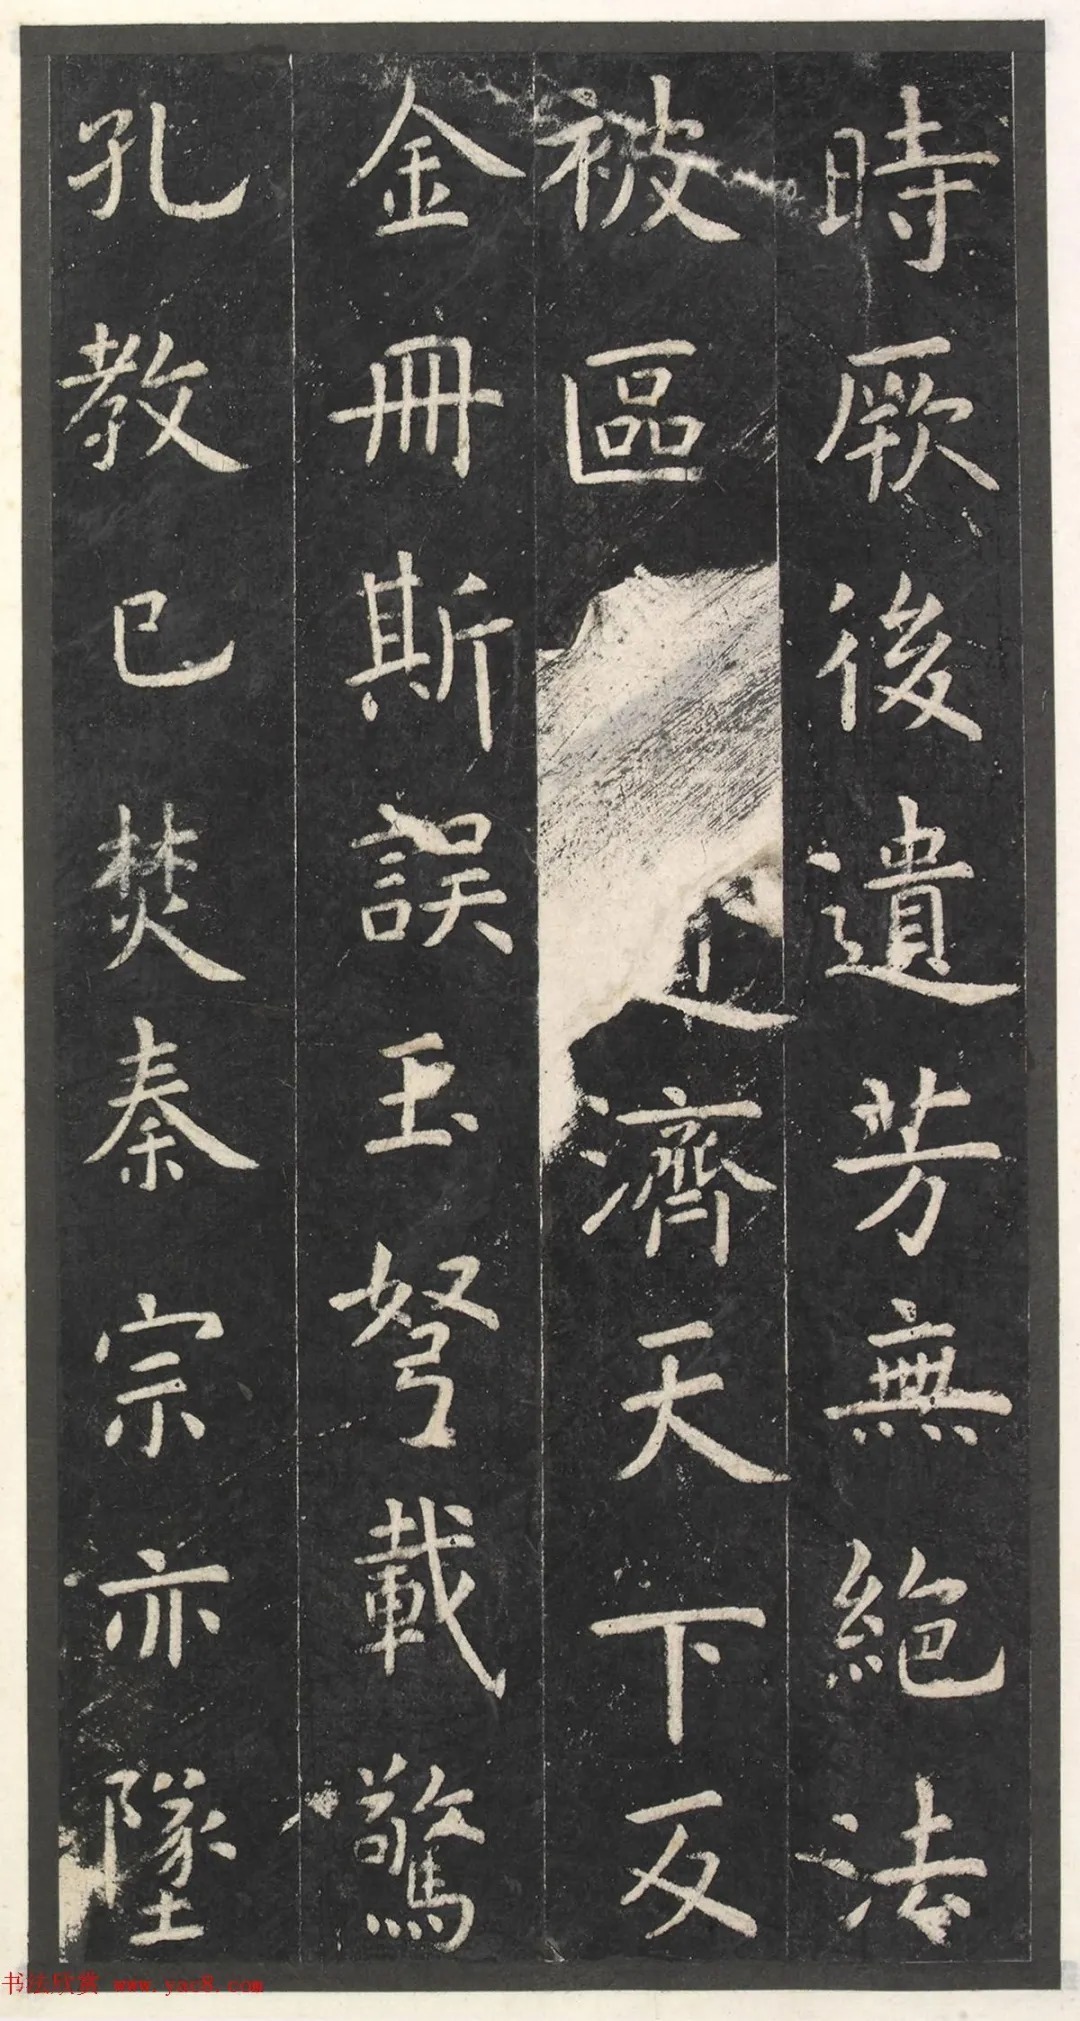 時厥後遺芳無絕法
被區濟天下反
金冊斯誤玉弩載驚
孔教已焚秦宗亦墜
书法欣赏 www.yac8.com